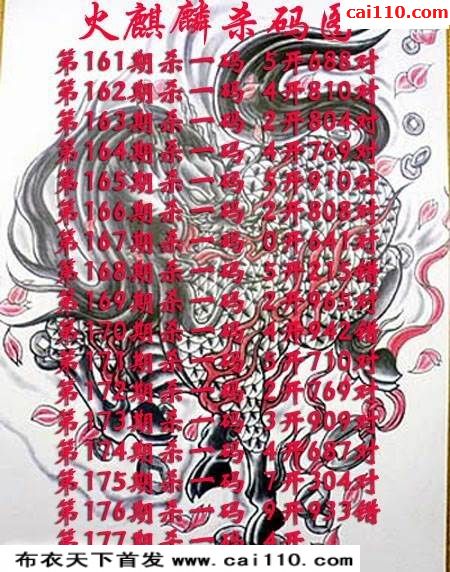 cai110.com
火麒麟杀码
第161期杀一码 5开688对
第162期杀一码 4开810对
第163期杀一码 2开804对
第164期杀一码 4开769对
第165期杀一码 5开910对
第166期杀一码 2开808对
第167期杀一码 0开641对
第168期杀一码 5开215错
第169期杀一码 2开965对
第170期杀一码 4开942错
第171期杀一码 5开710对
第172期杀一码 2开769对
第173期杀一码 3开909对
第174期杀一码 4开687对
第175期杀一码 7开304对
第176期杀一码 9开933错
第177期杀一码 4开
布衣天下首发 www.cai110.com